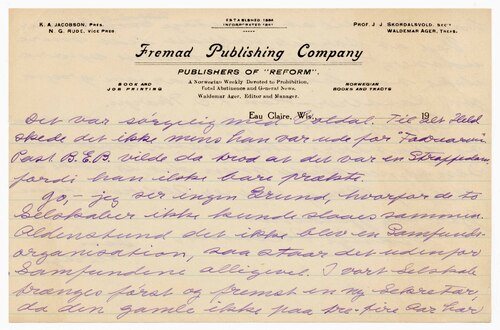 K. A. JACOBSON, PRES.
N. G. RUDE, VICE PRES.
ESTABLISHED 1894
INCORPORATED 1897
PROF. J. J. SKORDALSVOLD, SEC'Y
WALDEMAR AGER, TREAS.
Fremad Publishing Company
PUBLISHERS OF "REFORM".
BOOK AND
JOB PRINTING
A Norwegian Weekly Devoted to Prohibition,
Total Abstinence and General News.
Waldemar Ager, Editor and Manager.
NORWEGIAN
BOOKS AND TRACTS
Eau Claire, Wis., 19
Det var sørgelig med Til alt Held
skede det ikke mens han var ude for
Past B.E.B. vilde da trod at det var en
fordi han ikke bare
Jo, – jeg ser ingen Grund, hvorfor de to
Selskaber ikke kunde slaaes sammen.
Aldenstund det ikke blev en Samfunds-
organisation, saa staar det udenfor
Samfundene alligevel. I vort Selskab
trænges først og fremst en ny Sekretær,
da den gamle ikke paa tre-fire Aar har